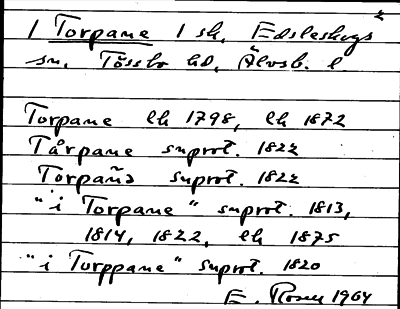 1 Torpane 1 sk. Edsleskogs
sn. Tössbo hd, Älvsb. l.
Torpane lh 1798, lh 1872
Tårpane suprot. 1822
Torpañs suprot. 1822
"i Torpane" suprot. 1813,
1814, 1822, lh 1875
"i Torppane" suprot. 1820
E. Rosén 1964